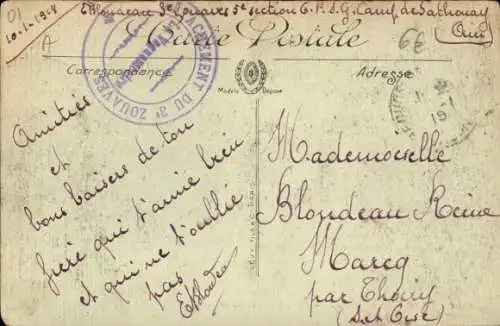 EBlondeau 3e Zouaves 5e section C.P.I.G. Camp de Sathonay
10-1-1918
(Ain)
A
6e
Carte Postale
Correspondance
Adresse
Modèle Déposé
DÉTACHEMENT DU 3e ZOUAVES
Amitiés
et
bons baisers de ton
frère qui t'aime bien
et qui ne t'oublie
pas
EBlondeau
Mademoiselle
Blondeau Reine
Marcq
par Thoiry
(S et Oise)